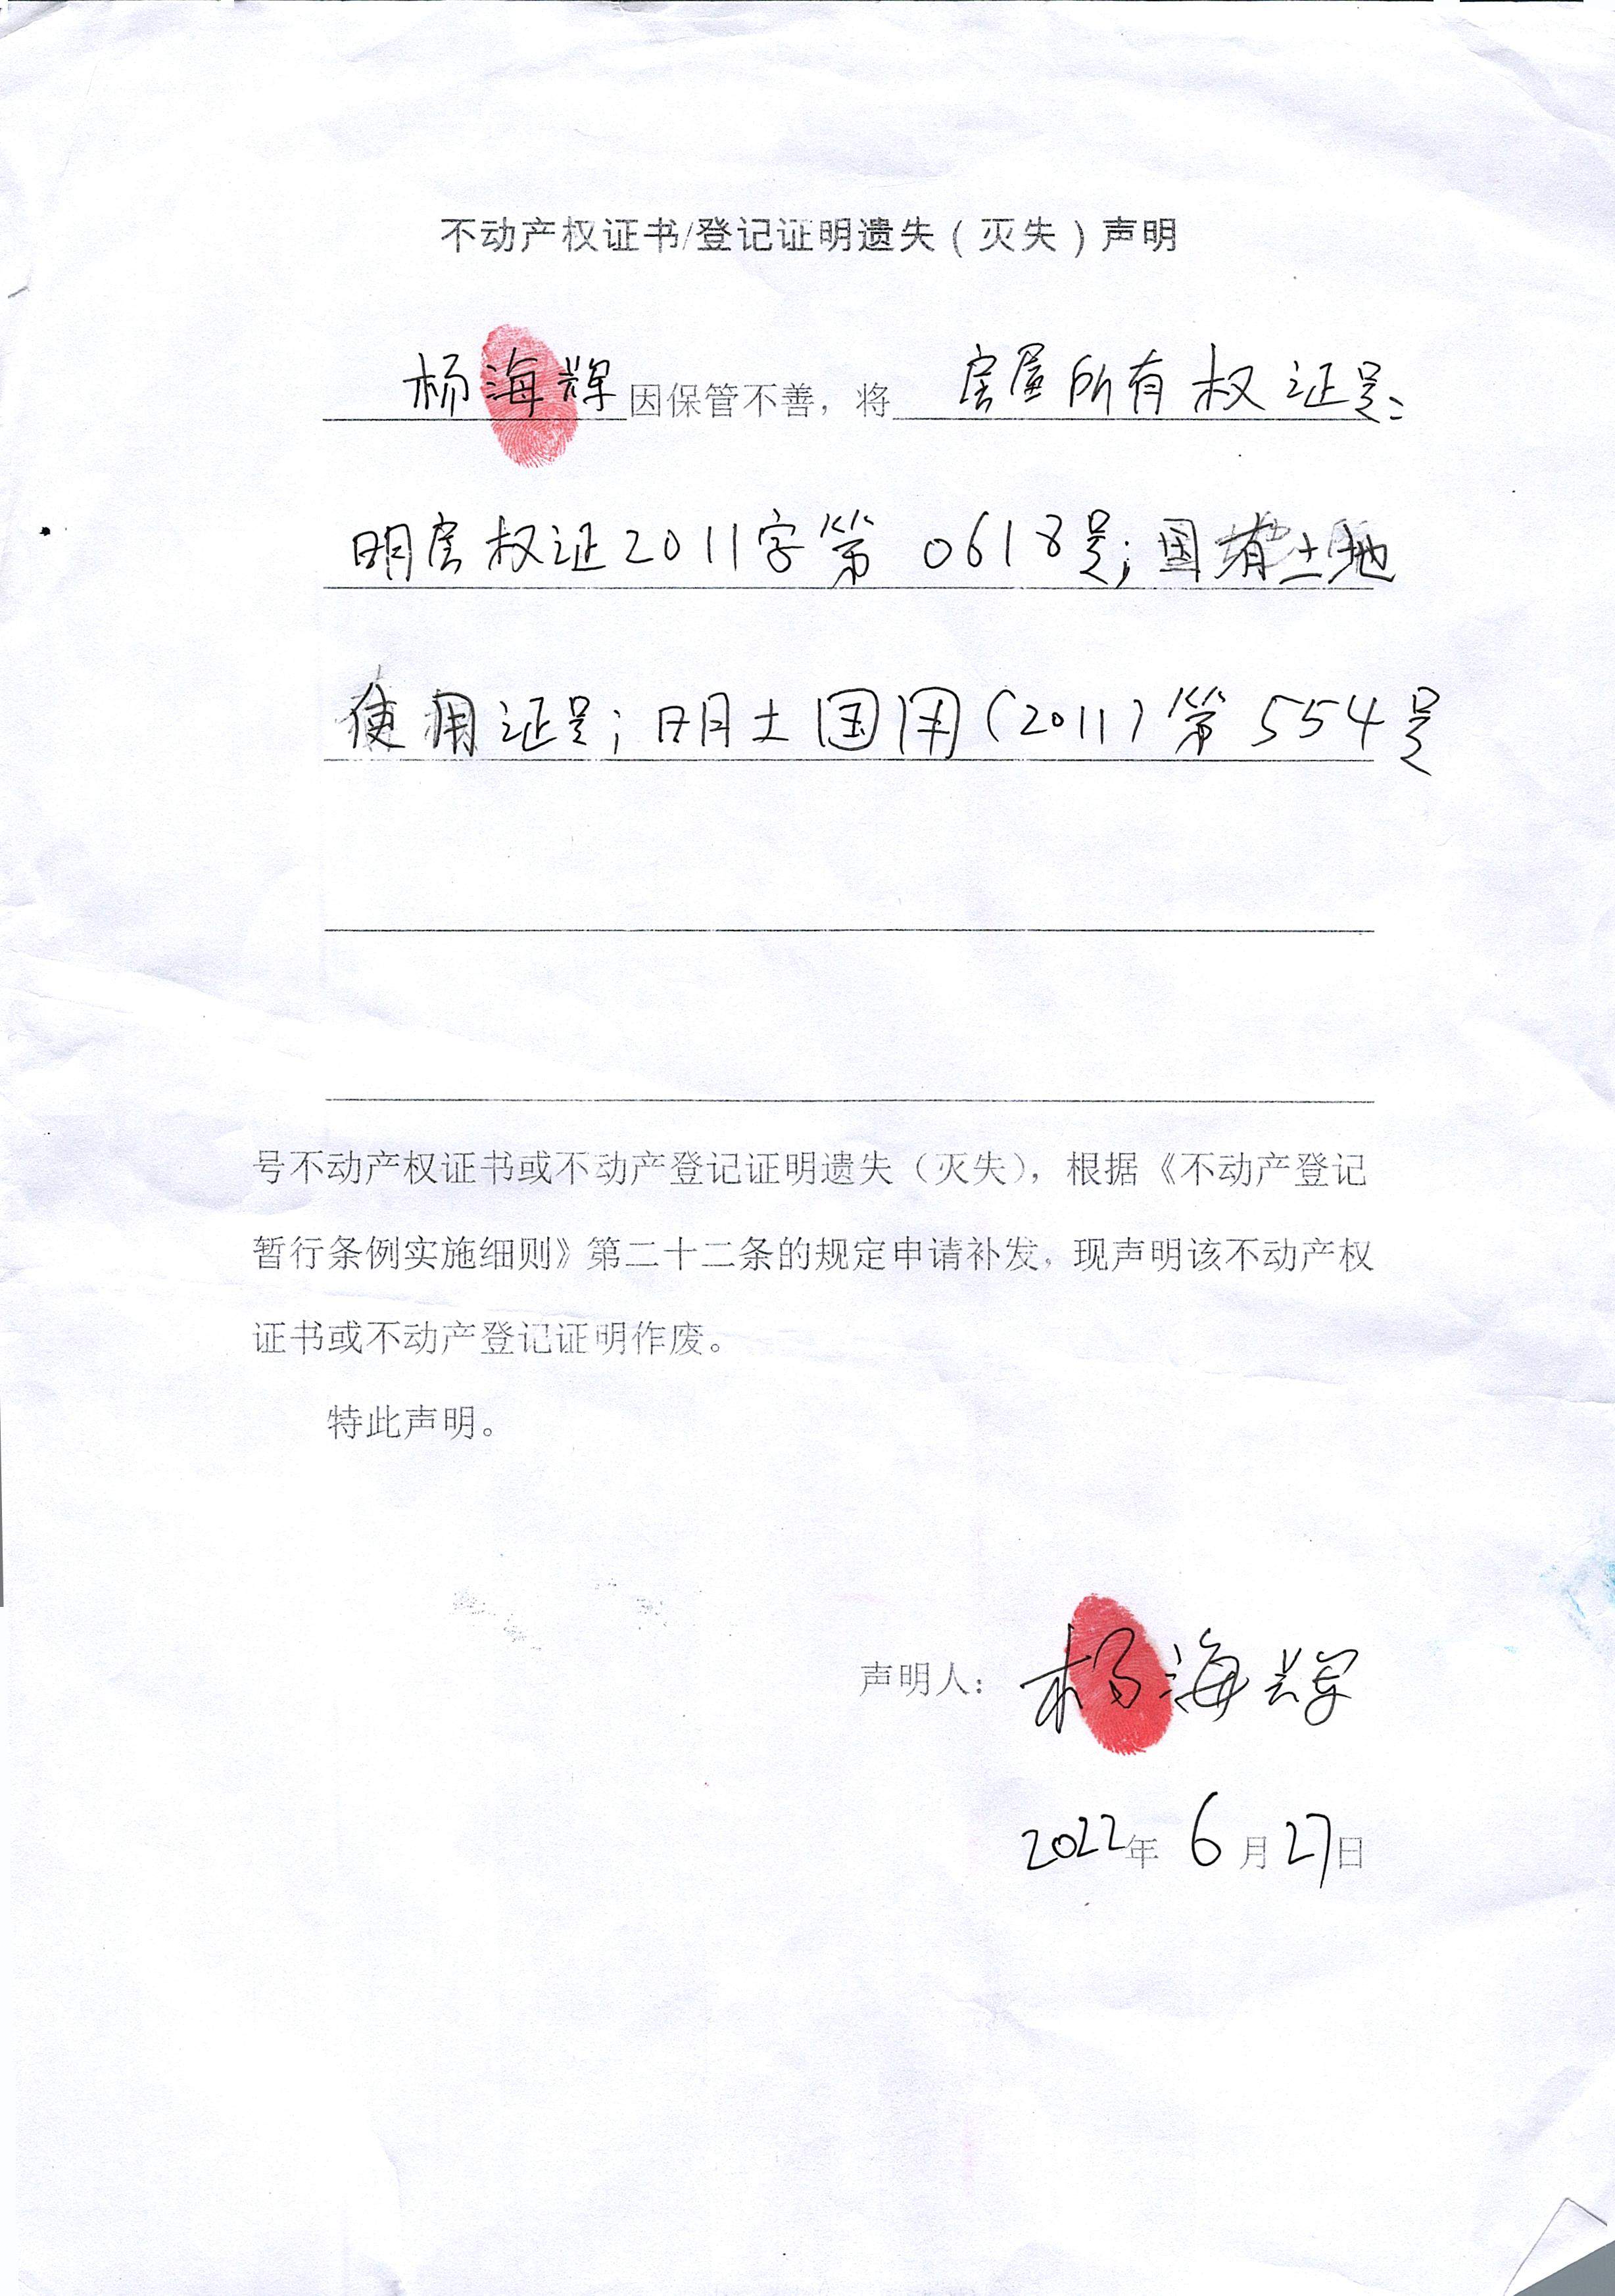 不动产权证书/登记证明遗失（灭失）声明
杨海辉因保管不善，将 房屋所有权证号：
明房权证2011字第 0618号；国有土地
使用证号；明土国用（2011）第554号
号不动产权证书或不动产登记证明遗失（灭失），根据《不动产登记
暂行条例实施细则》第二十二条的规定申请补发，现声明该不动产权
证书或不动产登记证明作废。
特此声明。
声明人：杨海辉
2022年 6月27日